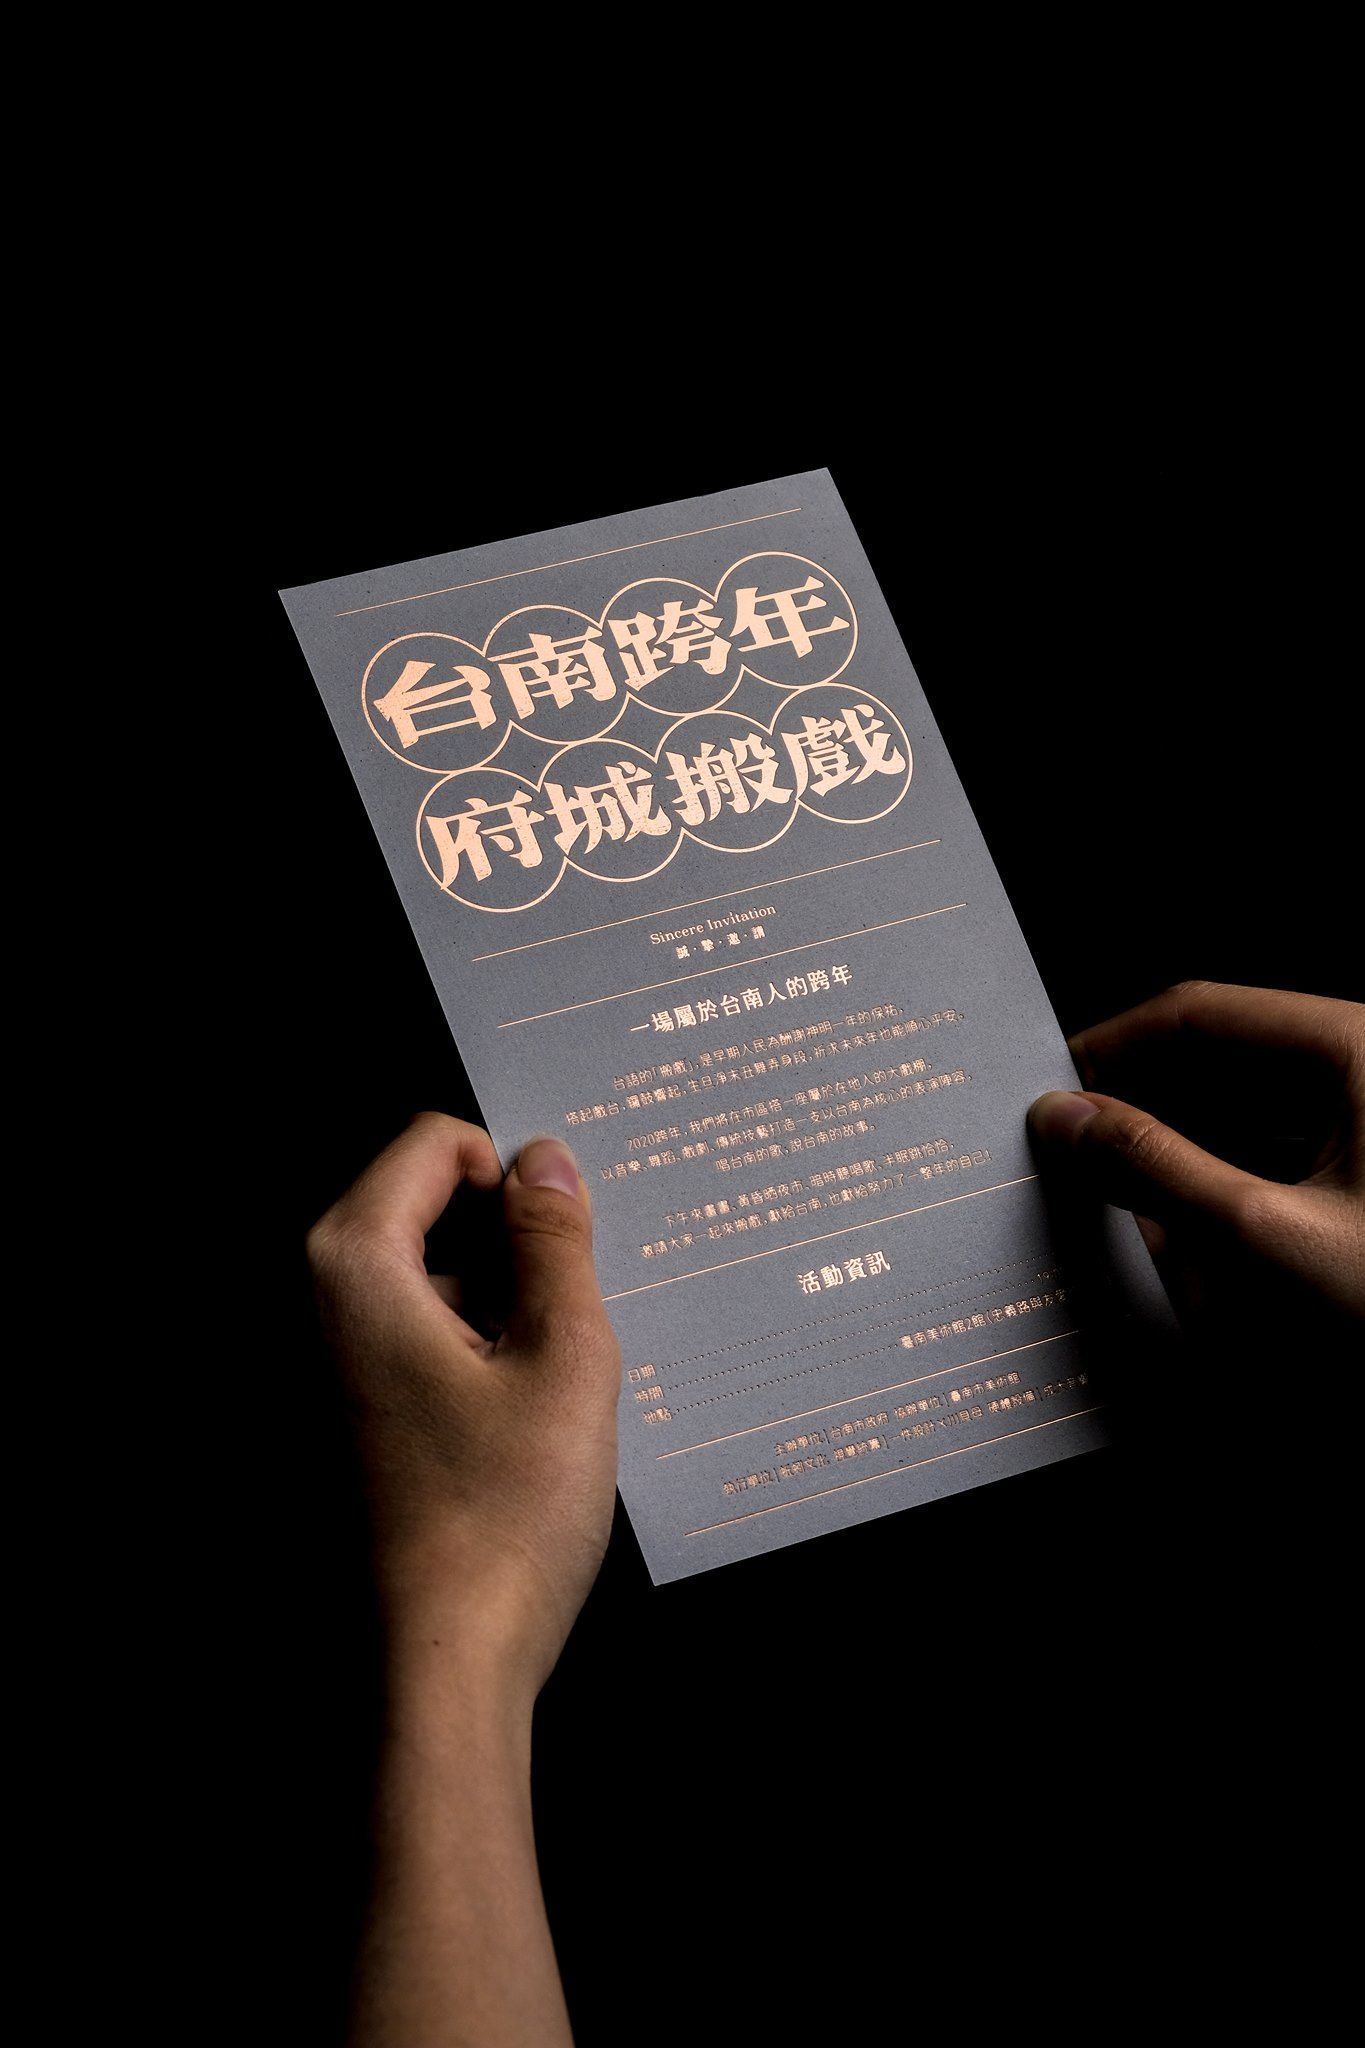 台南跨年
府城搬戲
Sincere Invitation
誠·摯·邀·請
一場屬於台南人的跨年
台語的「搬戲」,是早期人民為酬謝神明一年的保祐,
搭起戲台、鑼鼓響起,生旦淨末丑舞弄身段,祈求未來年也能順心平安。
2020跨年,我們將在市區搭一座屬於在地人的大戲棚,
以音樂、舞蹈、戲劇、傳統技藝打造一支以台南為核心的表演陣容,
唱台南的歌,說台南的故事。
下午來畫畫、黃昏晒夜市、暗時聽唱歌、半眠跳恰恰,
邀請大家一起來搬戲,獻給台南,也獻給努力了一整年的自己!
活動資訊
日期
時間
地點 臺南美術館2館(忠義路與友愛
主辦單位|台南市政府 協辦單位|臺南市美術館
執行單位|衍序文化 視覺統籌|一件設計×川貝母 硬體設備|成大音響